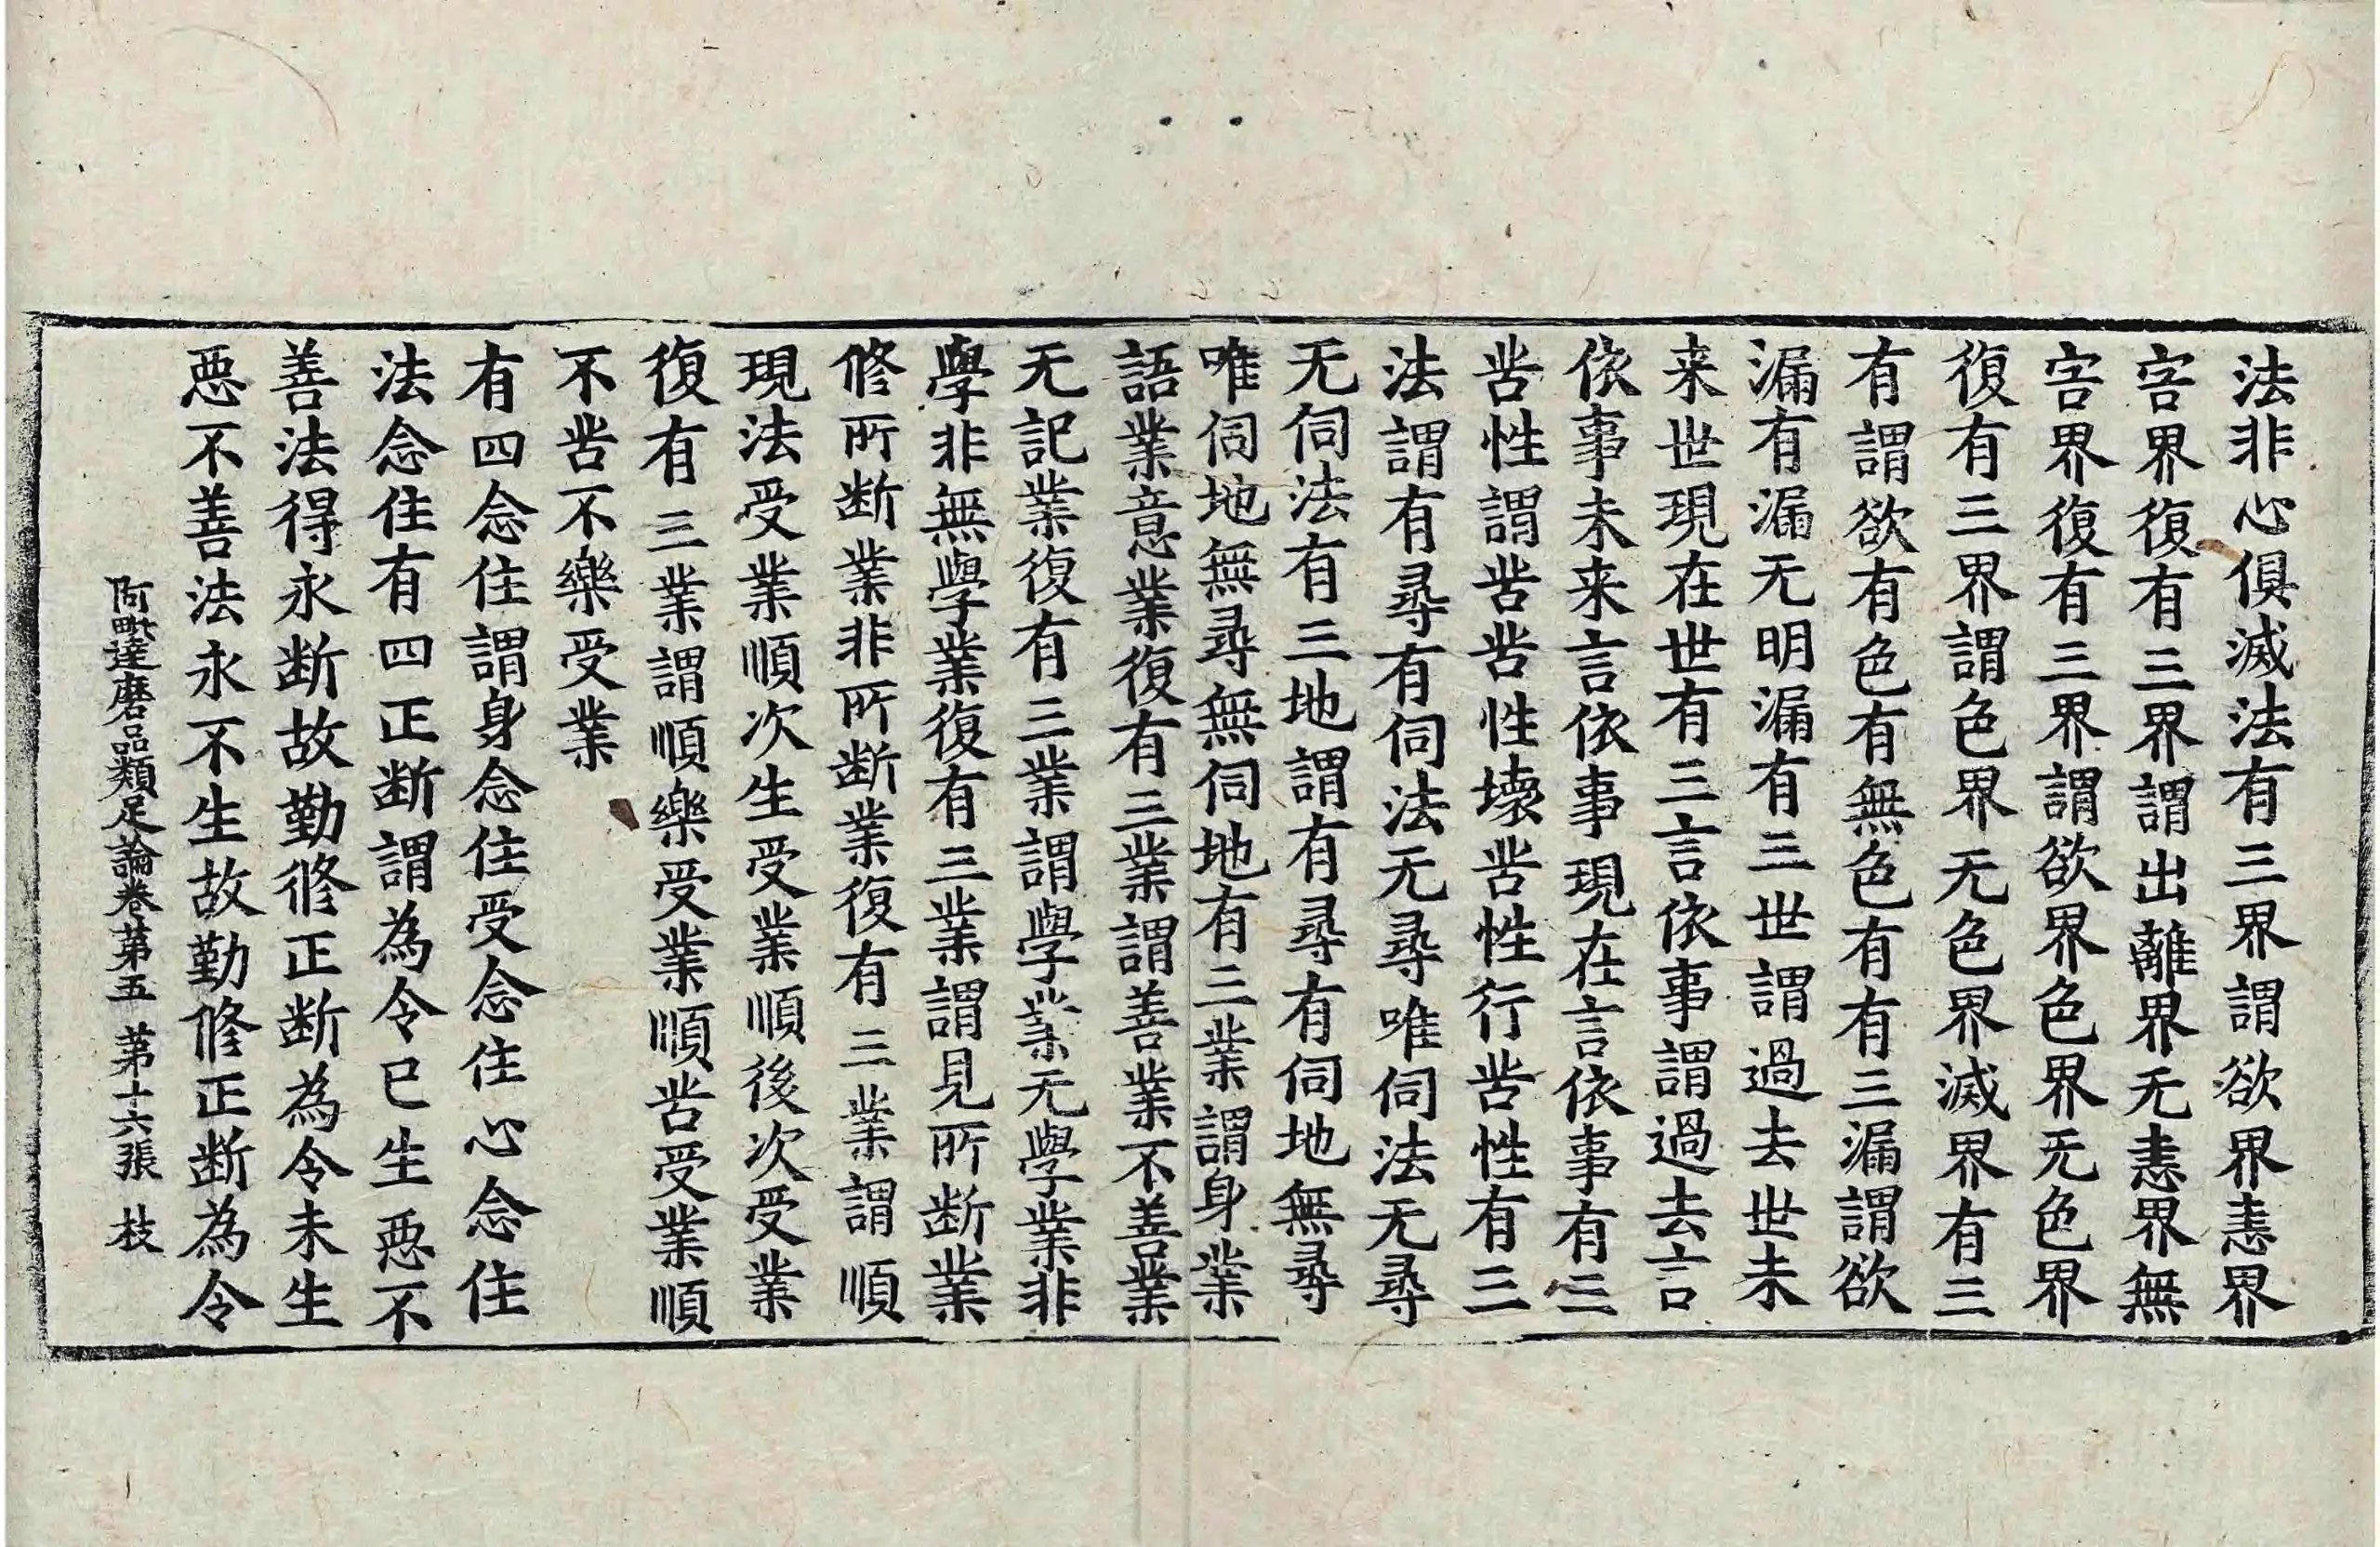 法非心俱滅法有三界謂欲界恚界
害界復有三界謂出離界无恚界無
害界復有三界謂欲界色界无色界
復有三界謂色界无色界滅界有三
有謂欲有色有無色有有三漏謂欲
漏有漏无明漏有三世謂過去世未
来世現在世有三言依事謂過去言
依事未来言依事現在言依事有三
苦性謂苦苦性壞苦性行苦性有三
法謂有尋有伺法无尋唯伺法无尋
无伺法有三地謂有尋有伺地無尋
唯伺地無尋無伺地有三業謂身業
語業意業復有三業謂善業不善業
无記業復有三業謂學業无學業非
學非無學業復有三業謂見所断業
修所断業非所断業復有三業謂順
現法受業順次生受業順後次受業
復有三業謂順樂受業順苦受業順
不苦不樂受業
有四念住謂身念住受念住心念住
法念住有四正断謂為令已生惡不
善法得永断故勤修正断為令未生
惡不善法永不生故勤修正断為令
阿毗達磨品類足論卷第五 第十六張 枝